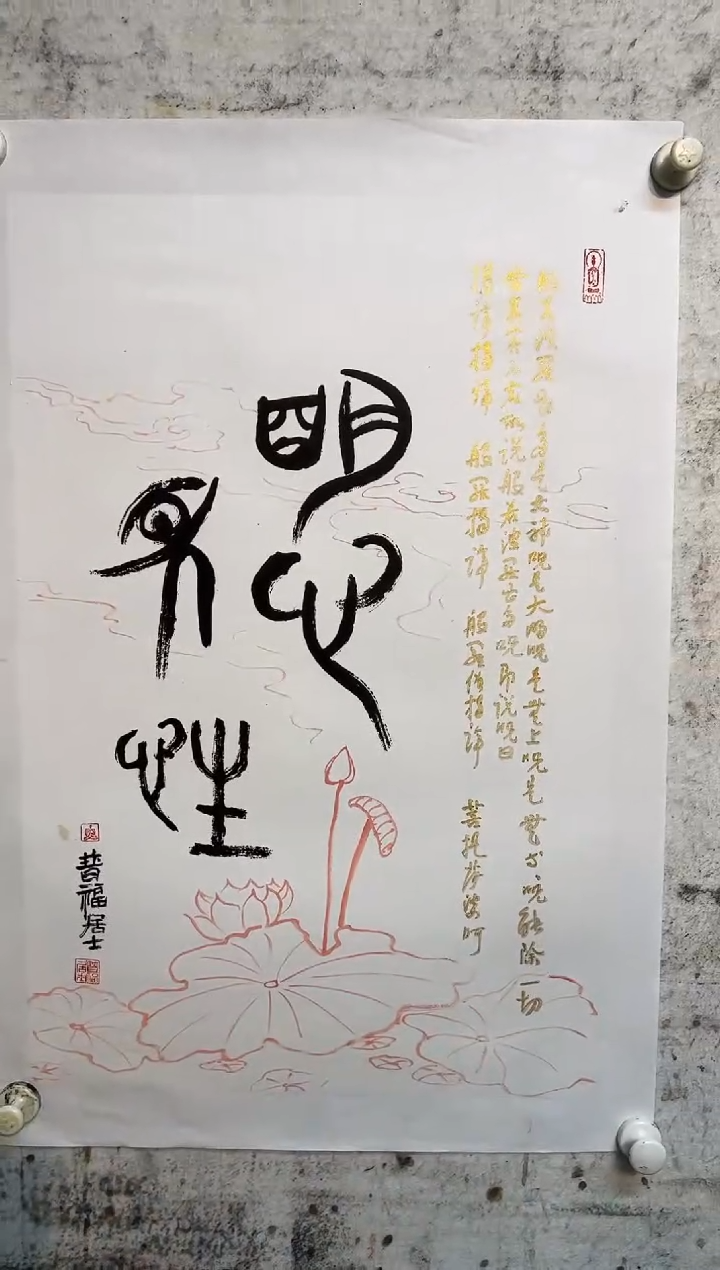 般若波羅蜜多是大神呪是大明呪是無上呪是無等呪能除一切
真實不虛故説般若波羅蜜多呪即説呪曰
揭諦揭諦 般羅揭諦 般羅僧揭諦 菩提莎婆呵
明心
見性
普福居士